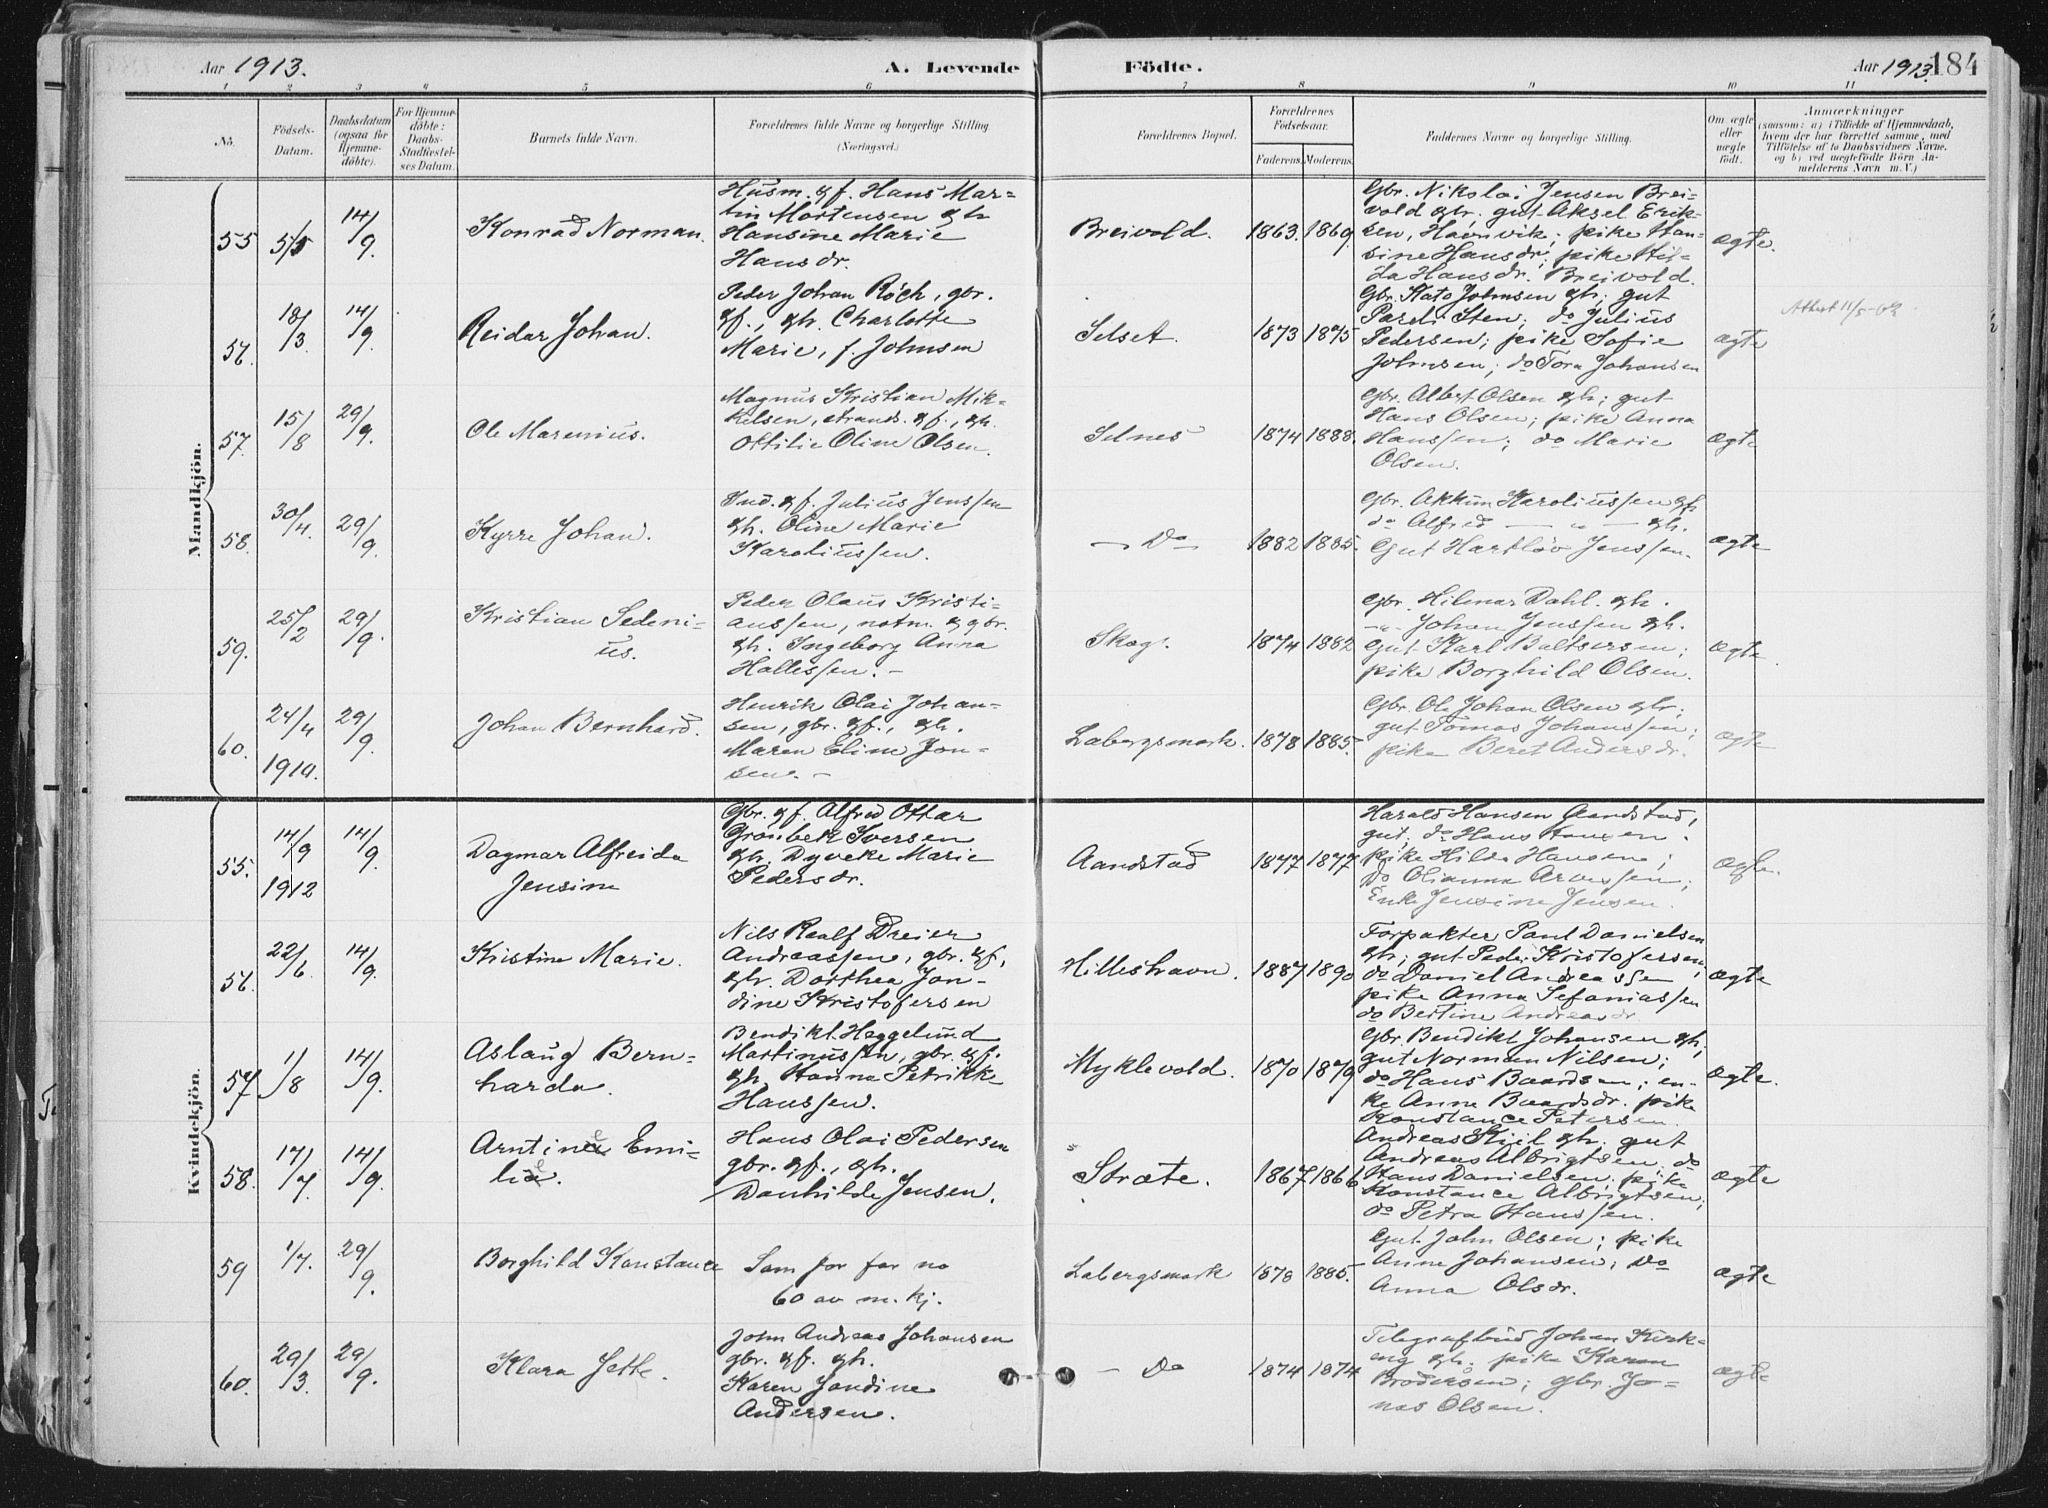 Aar 1913.
A. Levende Födte.
Aar 1913.
184
1 2 3 4 5 6 7 8 9 10 11
No.
Födsels-
Datum.
Daabsdatum
(ogsaa for
Hjemme-
döbte).
For Hjemme-
döbte:
Daabs-
Stadfæstel-
ses Datum.
Barnets fulde Navn.
Forældrenes fulde Navne og borgerlige Stilling
(Næringsvei.)
Forældrenes Bopæl.
Forældrenes
Födselsaar.
Faderens. Moderens.
Faddernes Navn og borgerlige Stilling.
Om ægte
eller
uægte
födt.
Anmærkninger
(saasom: a) i Tilfælde af Hjemmedaab,
hvem der har forrettet samme, med
Tilföielse af to Daabsvidners Navne,
og b) ved uægtefödte Börn An-
melderens Navn m.V.)
Mandkjön.
55
5/5
14/9
Konrad Norman.
Husm. & f. Hans Mar-
tin Mortensen & h
Hansine Marie
Hansdr.
Breivold.
1863. 1869.
Gbr. Nikolai Jensen Brei-
vold & h. gut Aksel Erik-
sen, Havnvik; pike Han-
sine Hansdr; pike Hil-
da Hansdr. Breivold.
ægte.
56.
18/3
14/9.
Reidar Johan.
Peder Johan Röch, gbr.
& f., & h. Charlotte
Marie, f. Johnsen
Selset.
1873 1875
Gbr. Kato Johnsen & h; gut
Pareli Sten; do Julius
Pedersen; pike Sofie
Johnsen; do Tora Johansen
ægte
Attest 11/5-
57.
15/8
29/9.
Ole Marenius.
Magnus Kristian Mik-
kelsen, strands. & f., & h.
Ottilie Oline Olsen.
Selnes
1874 1888.
Gbr. Albert Olsen & h; gut
Hans Olsen; pike Anna
Hanssen; do Marie
Olsen.
ægte
58.
30/4.
29/9.
Kyrre Johan.
Ind. & f. Julius Jenssen
& h. Oline Marie
Karoliussen.
— Do —
1882 1885.
Gbr. Akkim Karoliussen & h
do Alfred — " — & h.
Gut Hartlöv Jenssen.
ægte
59.
25/2
29/9.
Kristian Sedeni-
us.
Peder Olaus Kristi-
anssen, notm. & gbr.
& h. Ingeborg Anna
Hallessen. -
Skog.
1874 1882
Gbr. Hilmar Dahl. & h.
-"- Johan Jenssen & h.
Gut Karl Baltsersen;
pike Borghild Olsen.
ægte.
60.
24/4
1910.
29/9.
Johan Bernhard.
Henrik Olai Johan-
sen, gbr. & f., & h.
Maren Eline Jon-
sen. -
Labergsmark.
1878 1885.
Gbr. Ole Johan Olsen & h;
gut Tomas Johanssen;
pike Beret Andersdr.
ægte
Kvindekjön.
55.
14/9
1912
14/9.
Dagmar Alfreida
Jensine
Gbr. & f. Alfred Ottar
Grönbek Iversen
& h. Dyveke Marie
Pedersdr.
Aandstad
1877 1877
Harald Hansen Aandstad,
gut; do Hans Hansen.
pike Hilda Hansen;
do Olianna Arvessen;
Enke Jensine Jensen.
ægte.
56.
22/6.
14/9.
Kristine Marie.
Nils Realf Dreier
Andreassen, gbr. & f,
& h. Dorthea Jon-
dine Kristofersen
Hilleshavn.
1887 1890
Forpakter Paul Danielsen
& h; gut Peder Kristofersen;
do Daniel Andreassen
pike Anna Sefaniassen
do Bertine Andreasdr.
ægte
57.
1/8
14/9.
Aslaug Bern-
harda.
Bendikt Heggelund
Martinussen, gbr. & f.
& h. Hanna Petrikke
Hanssen.
Myklevold.
1870 1879
Gbr. Bendikt Johansen & h;
gut Norman Nilsen;
do Hans Baardsen; en-
ke Anne Baardsdr. pike
Konstance Petersen.
ægte.
58.
17/7
14/9.
Arntine Emi-
lie.
Hans Olai Pedersen
gbr. & f., & h.
Danhilde Jensen.
Stræte.
1867 1866
Andreas Kiil & h. gut
Andreas Albrigtsen do
Hans Danielsen; pike
Konstance Albrigtsen;
do Petra Hanssen.
ægte
59
1/7.
29/9.
Borghild Konstance
Som for for no
60 av m. kj.
Labergsmark
1878 1885.
Gut John Olsen; pike
Anne Johansen; do
Anna Olsdr.
ægte
60.
29/3.
29/9.
Klara Jette.
John Andreas Johansen
gbr. & f. & h.
Karen Jondine
Andersen.
— Do
1874 1874
Telegrafbud Johan Kirk-
eng & h. pike Karen
Brodersen; gbr. Jo-
nas Olsen.
ægte